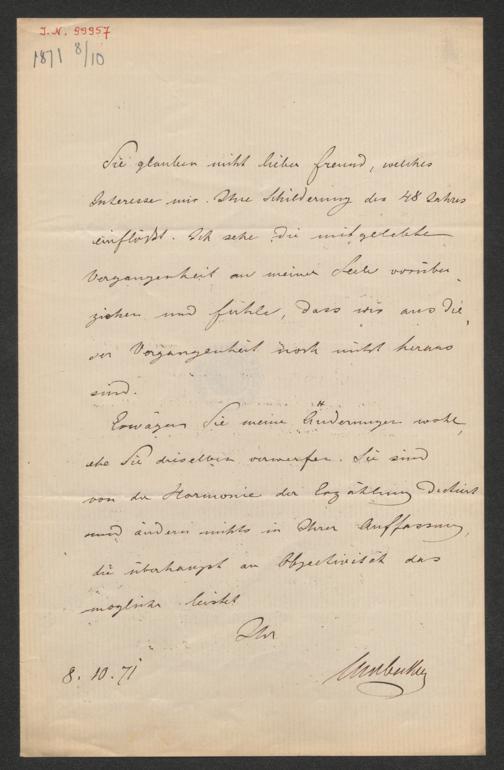 I.N. 99957
1871 8/10
Sie glauben nicht lieber Freund, welches
Interesse mir Ihre Schilderung des 48 Jahres
einflößt. Ich sehe die mitgelebte
Vergangenheit an meiner Seele vorüber
ziehen und fühle, dass wir aus die
ser Vergangenheit noch nicht heraus
sind.
Erwägen Sie meine Änderungen wohl,
ehe Sie dieselben verwerfen. Sie sind
von der Harmonie der Erzählung dictiert
und ändern nichts in Ihrer Auffassung,
die überhaupt an Objectivität das
mögliche leistet
Ihr
8.10.71